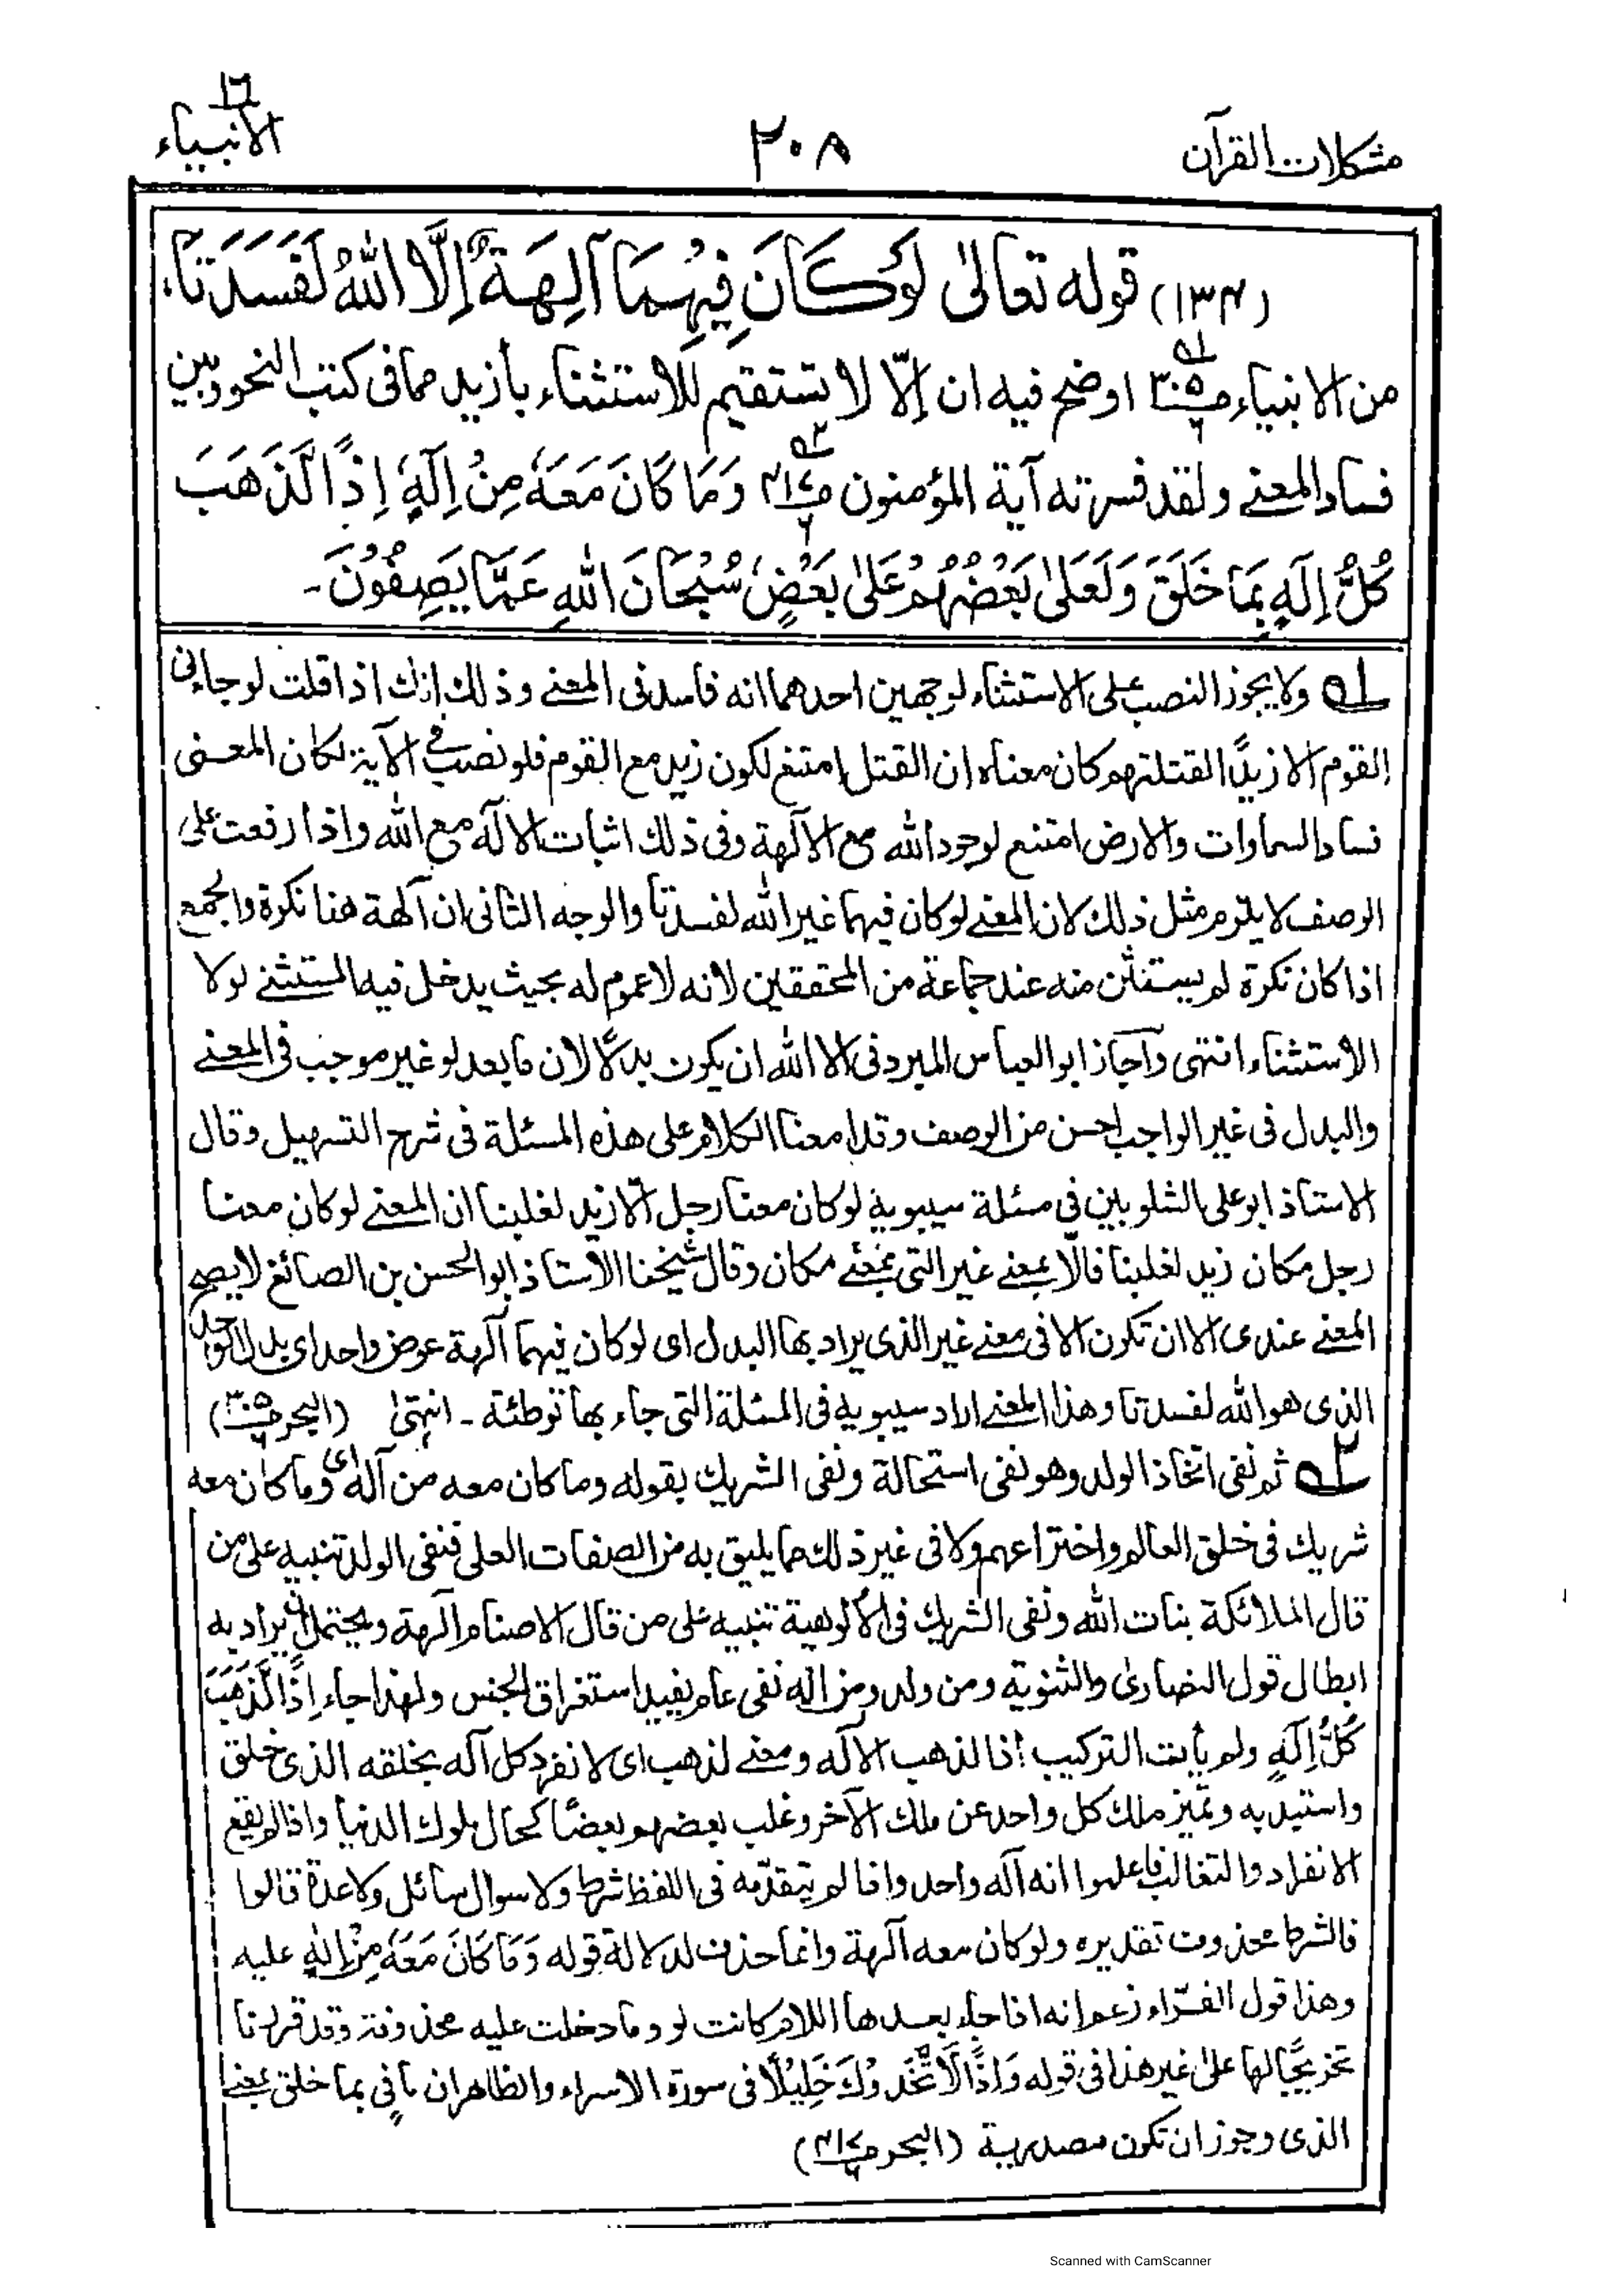 مشكلات القرآن
٢٠٨
١٦
الأنبياء
(١٣٤) قوله تعالىٰ لَوْ كَانَ فِيْهِمَا آلِهَةٌ اِلَّا اللهُ لَفَسَدَتَا،
من الانبياء ص٣٠٥/٦ اوضح فيه ان إلّا لا تستقيم للاستثناء بأزيد مما فى كتب النحو وبين
فساد المعنى ولقد فسرته آية المؤمنون ص٤١٧/٦ وَمَا كَانَ مَعَهٗ مِنْ اِلٰهٍ اِذًا لَّذَهَبَ
كُلُّ اِلٰهٍ بِمَا خَلَقَ وَلَعَلىٰ بَعْضُهُمْ عَلىٰ بَعْضٍ سُبْحَانَ اللهِ عَمَّا يَصِفُوْنَ۔
لـه ولا يجوز النصب على الاستثناء لوجهين احدهما انه فاسد فى المعنى وذلك انك اذا قلت لو جاءنى
القوم الا زيدًا لقتلتهم كان معناه ان القتل امتنع لكون زيد مع القوم فلو نصب فى الآية لكان المعنى
فساد السماوات والارض امتنع لوجود الله مع الآلهة وفى ذلك اثبات الاله مع الله واذا رفعت على
الوصف لا يلزم مثل ذلك لان المعنى لو كان فيهما غير الله لفسدتا والوجه الثانى ان آلهة هنا نكرة والجمع
اذا كان نكرة لم يستثن منه عند جماعة من المحققين لانه لا عموم له بحيث يدخل فيه المستثنى لولا
الاستثناء انتهى وأجاز ابو العباس المبرد فى الا الله ان يكون بدلًا لان ما بعد لو غير موجب فى المعنى
والبدل فى غير الواجب احسن من الوصف وقد امعنا الكلام على هذه المسئلة فى شرح التسهيل وقال
الاستاذ ابو على الشلوبين فى مسئلة سيبويه لو كان معنا رجل الّا زيد لغلبنا ان المعنى لو كان معنا
رجل مكان زيد لغلبنا فالّا بمعنى غير التى بمعنى مكان وقال شيخنا الاستاذ ابو الحسن بن الصائغ لا يصح
المعنى عندى الا ان تكون الا فى معنى غير الذى يراد بها البدل اى لو كان فيهما آلهة عوض واحد اى بدل الواحد
الذى هو الله لفسدتا وهذا المعنى اراد سيبويه فى المسئلة التى جاء بها توطئة ۔ انتهىٰ (البحر ص٣٠٥/٦)
٢ـه ثم نفى اتخاذ الولد وهو نفى استحالة ونفى الشريك بقوله وما كان معه من آله اى وما كان معه
شريك فى خلق العالم واختراعهم ولا فى غير ذلك مما يليق به من الصفات العلى فنفى الولد تنبيه على من
قال الملائكة بنات الله ونفى الشريك فى الألوهية تنبيه على من قال الاصنام آلهة ويحتمل ان يراد به
ابطال قول النصارىٰ والثنوية ومن ولد ومن اله نفى عام يفيد استغراق الجنس ولهذا جاء اِذًا لَّذَهَبَ
كُلُّ اِلٰهٍ ولم يأت التركيب اذا لذهب الآله ومعنى لذهب اى لانفرد كل آله بخلقه الذى خلق
واستبد به وتميز ملك كل واحد عن ملك الآخر وغلب بعضهم بعضًا كحال ملوك الدنيا واذا لم يقع
الانفراد والتغالب فاعلموا انه آله واحد واذا لم يتقدمه فى اللفظ شرط ولا سوال سائل ولا عدة قالوا
فالشرط محذوف تقديره ولو كان معه آلهة وانما حذف لدلالة قوله وَمَا كَانَ مَعَهٗ مِنْ اِلٰهٍ عليه
وهذا قول الفرّاء زعم انه اذا جاء بعدها اللام كانت لو وما دخلت عليه محذوفة وقد قررنا
تخريجًا لها علىٰ غير هذا فى قوله وَاِذًا لَّاتَّخَذُوْكَ خَلِيْلًا فى سورة الاسراء والظاهر ان ما فى بما خلق بمعنى
الذى وجوز ان تكون مصدرية (البحر ص٤١٧/٦)
Scanned with CamScanner